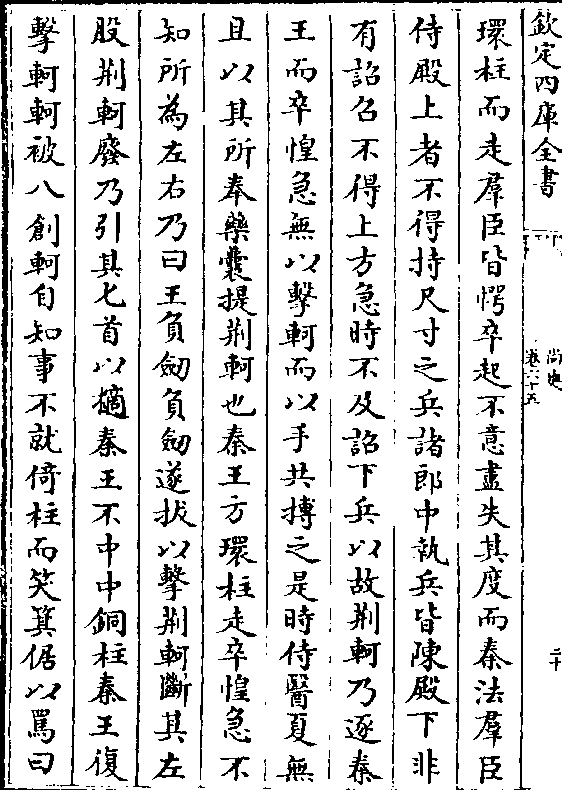 欽定四庫全書
尚史
卷六十五
二十
環柱而走羣臣皆愕卒起不意盡失其度而秦法羣臣
侍殿上者不得持尺寸之兵諸郎中執兵皆陳殿下非
有詔召不得上方急時不及詔下兵以故荆軻乃逐秦
王而卒惶急無以擊軻而以手共搏之是時侍醫夏無
且以其所奉藥囊提荆軻也秦王方環柱走卒惶急不
知所為左右乃曰王負劒負劒遂拔以擊荆軻斷其左
股荆軻廢乃引其匕首以擿秦王不中中銅柱秦王復
擊軻軻被八創軻自知事不就倚柱而笑箕倨以罵曰